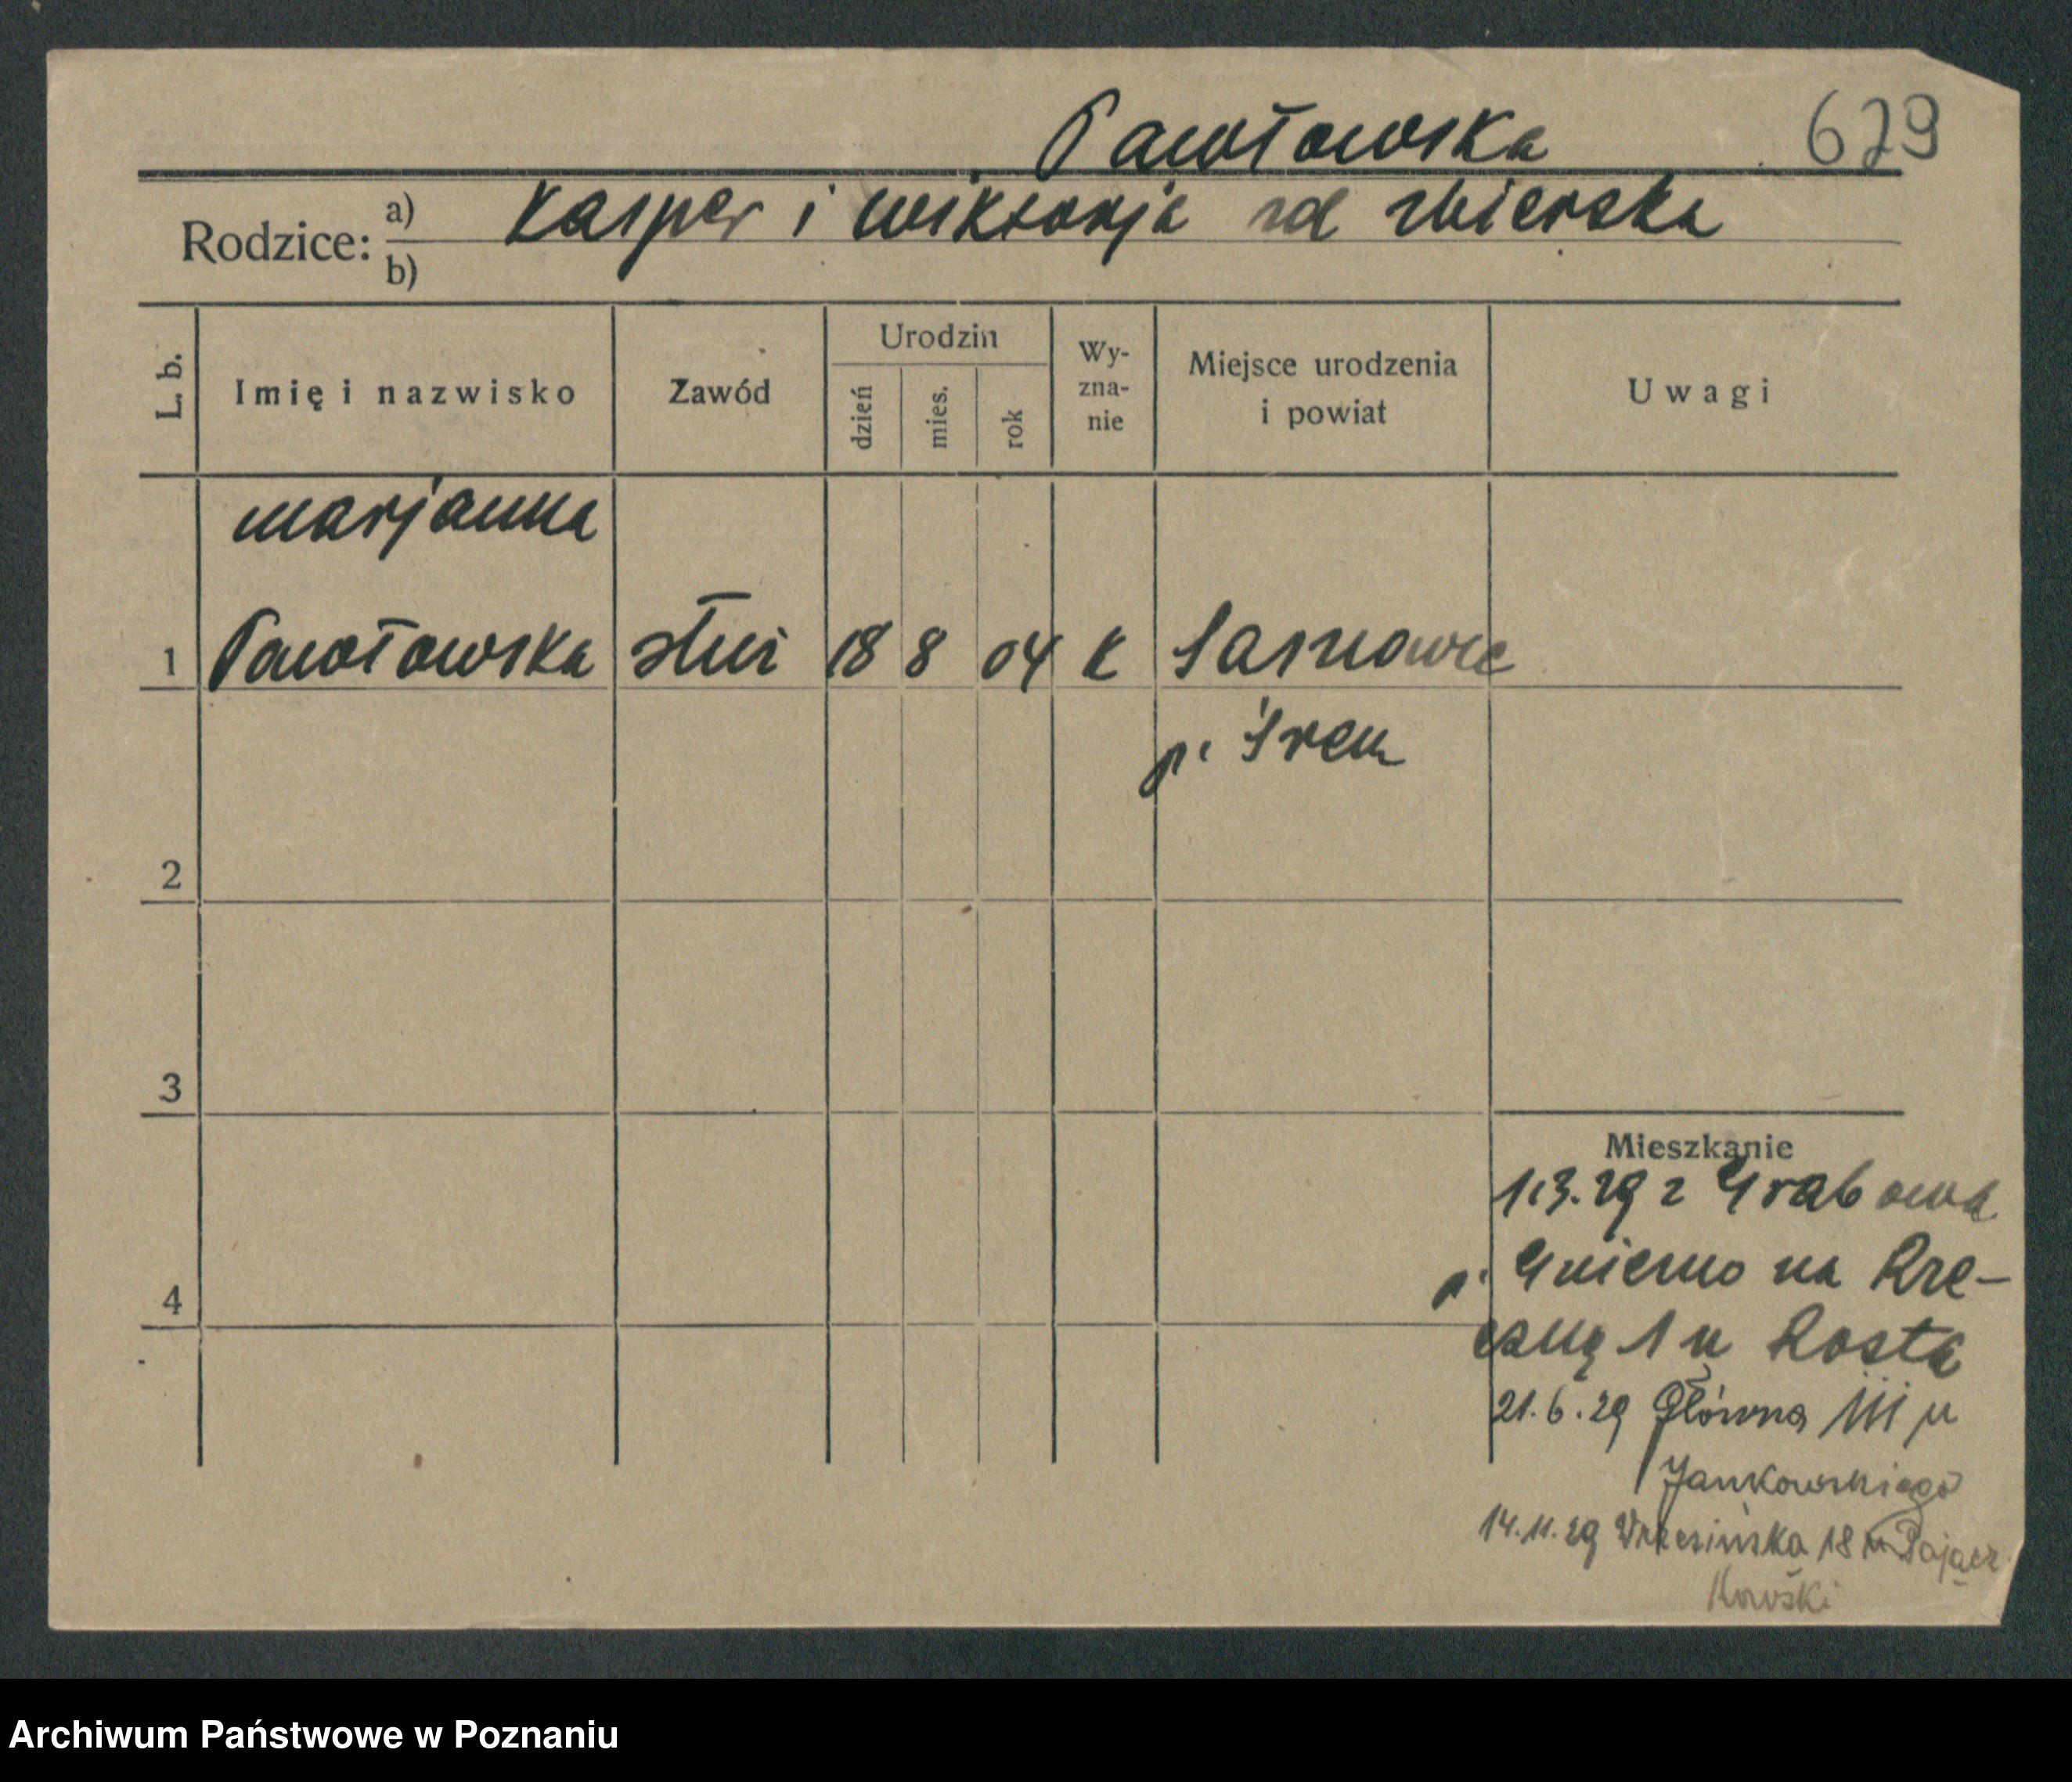 Pawłowska 679
Rodzice: a) Kasper i Wiktorja zd Zbierska
b)
L. b. Imię i nazwisko Zawód Urodzin dzień mies. rok Wy-zna-nie Miejsce urodzenia i powiat Uwagi
Marjanna
1 Pawłowska służ 18 8 04 K
p. Śrem
2
3
Mieszkanie
1.3.29 z Grabowa
p. Gniezno na Rze-
4
czną 1 u Rosta
21.6.29 Główna III u
Jankowskiego
14.11.29 Wrzesińska 18 u Pającz
Kowski
Archiwum Państwowe w Poznaniu